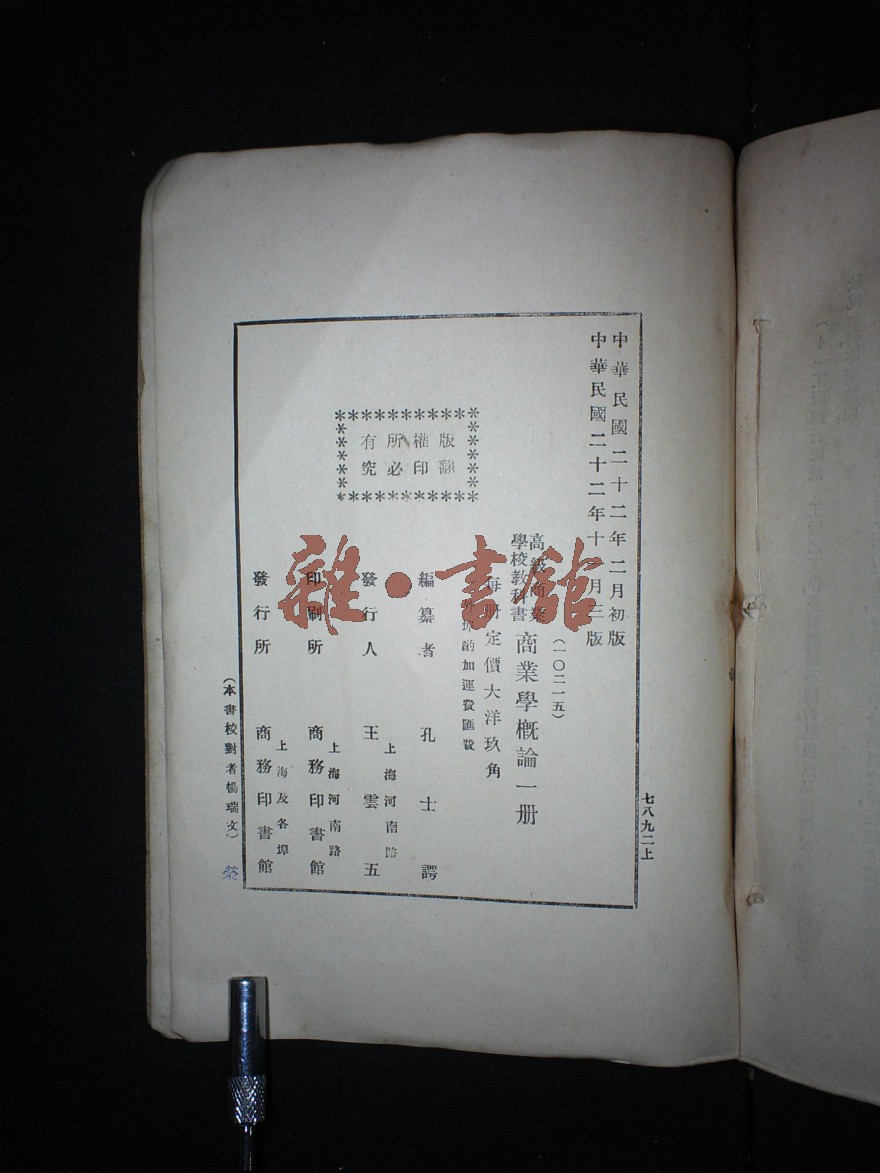 中華民國二十二年二月初版
中華民國二十二年十月三版
版權所有
翻印必究
(一〇二一五)
高級商業學校教科書 商業學概論一册
每册定價大洋玖角
外埠酌加運費匯費
編纂者 孔士諤
發行人 王雲五
上海河南路
印刷所 商務印書館
上海河南路
發行所 商務印書館
上海及各埠
(本書校對者楊瑞文)
七八九二上
榮
雜·書館